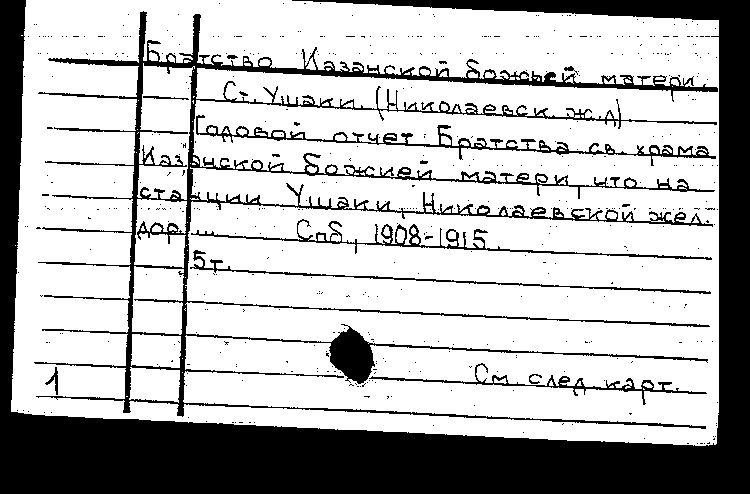 Братство Казанской божьей матери.
Ст. Ушаки (Николаевск. ж.д)
Годовой отчет Братства св. храма
Казанской Божией матери, что на
станции Ушаки, Николаевской жел.
дор.... Спб., 1908-1915.
5т.
См. след. карт.
1